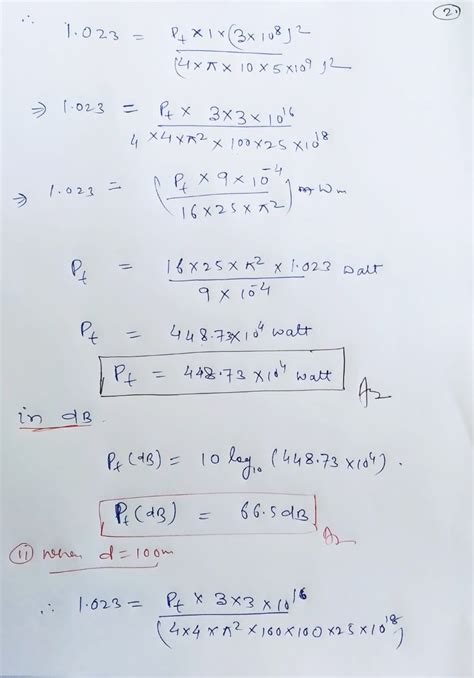 2.
∴ 1.023 = Pt × 1 × (3×10⁸)²
(4×π×10×5×10⁹)²
⇒ 1.023 = Pt × 3×3×10¹⁶
4×4×π²×100×25×10¹⁸
⇒ 1.023 = (Pt × 9 × 10⁻⁴
16×25×π²)
Pt = 16×25×π²×1.023 watt
9 × 10⁻⁴
Pt = 448.73×10⁴ watt
Pt = 448.73 ×10⁴ watt
in dB
Pt (dB) = 10 log₁₀ (448.73 ×10⁴).
Pt (dB) = 66.5 dB
(ii) when d=100m
∴ 1.023 = Pt × 3×3×10¹⁶
(4×4×π²×100×100×25×10¹⁸)